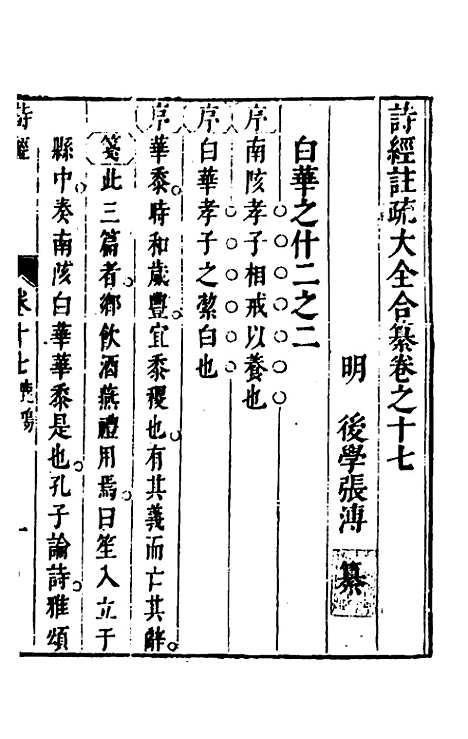 詩經註疏大全合纂卷之十七
明 後學張溥 纂
白華之什二之二
序南陔孝子相戒以養也
序白華孝子之絜白也
序華黍時和歲豐宜黍稷也有其義而亡其辭
箋此三篇者鄉飲酒燕禮用焉曰笙入立于
縣中奏南陔白華華黍是也孔子論詩雅頌
詩經 卷十七 一